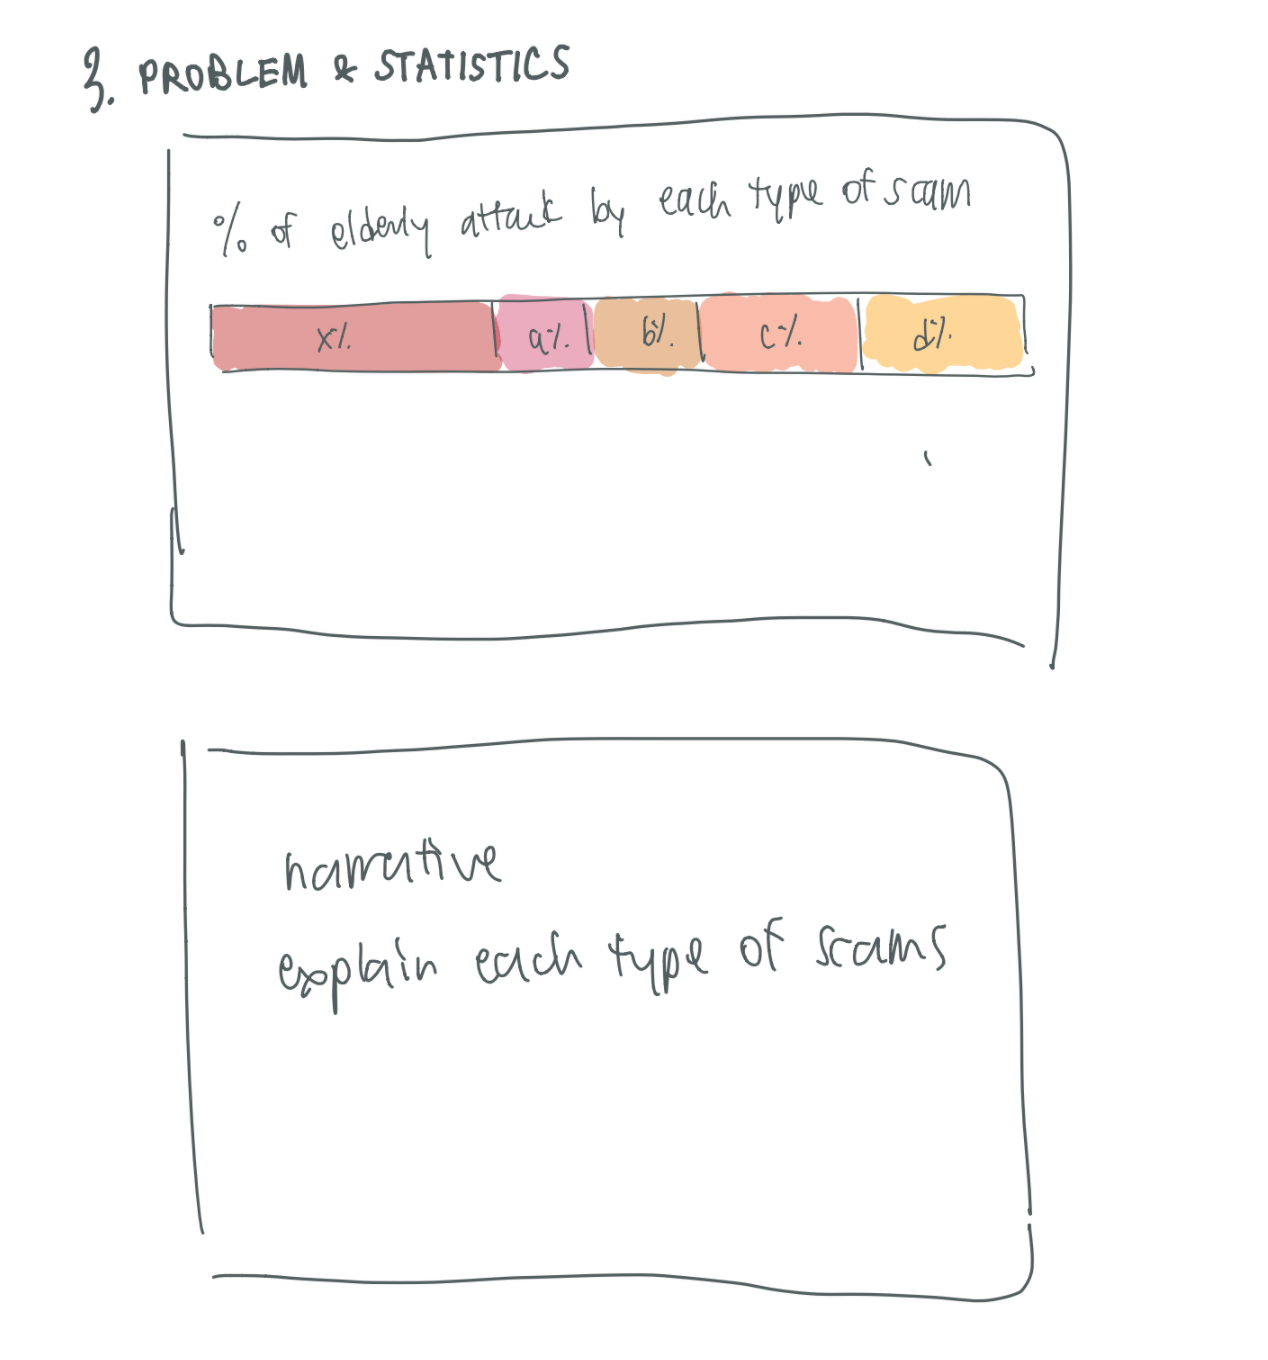 3. PROBLEM & STATISTICS
% of elderly attack by each type of scam
x% a% b% c% d%
narrative
explain each type of scams